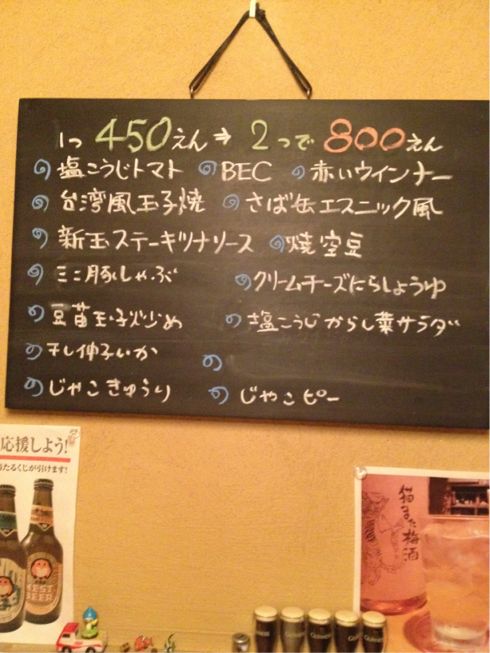 1つ 450えん→2つで 800えん
塩こうじトマト BEC 赤いウインナー
台湾風玉子焼 さば缶エスニック風
新玉ステーキツナソース 焼空豆
ミニ豚しゃぶ クリームチーズにらしょうゆ
豆苗玉子炒め 塩こうじからし菜サラダ
干し伸子いか
じゃこきゅうり じゃこピー
応援しよう!
たるくじが引けます!
NEST
BEER
猫また梅酒
GUINNESS